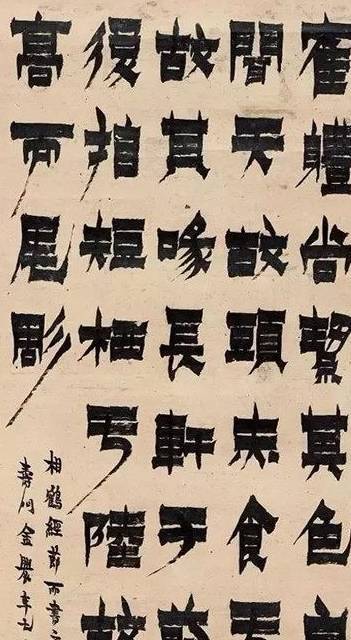 體尚絜其色
聞天故頭赤食
故其喙長軒于
後指短栖于陸故
高而尾彫
相鶴經節而書之
壽門金農